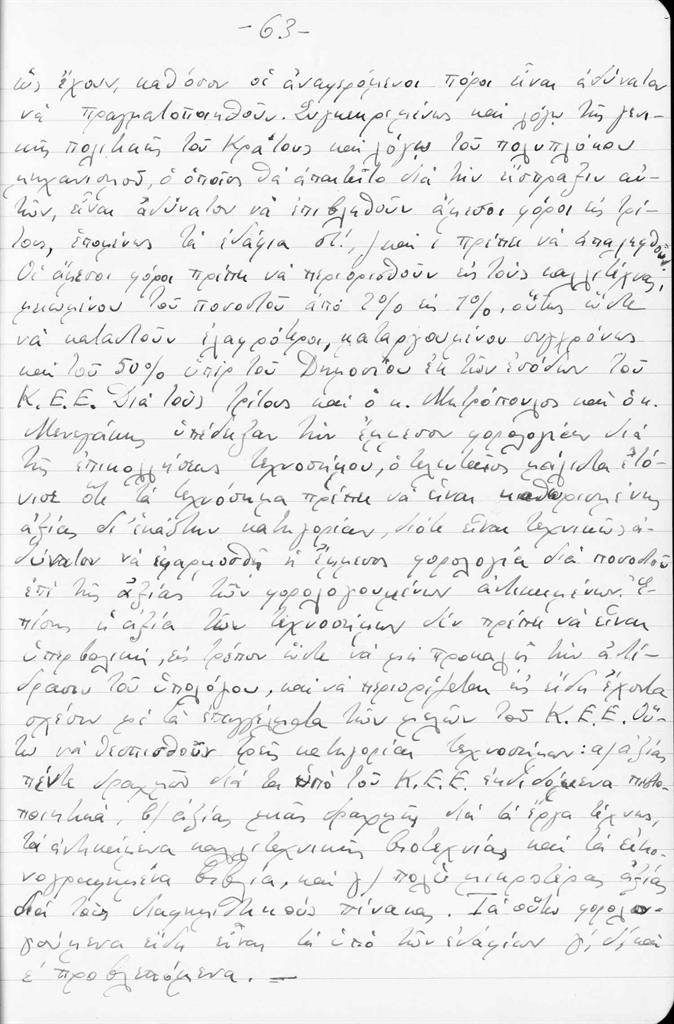 -63-
ὡς ἔχουν, καθόσον οἱ ἀναφερόμενοι πόροι εἶναι ἀδύνατον
νὰ πραγματοποιηθοῦν. Συγκεκριμένως καὶ λόγῳ τῆς γενι-
κῆς πολιτικῆς τοῦ Κράτους καὶ λόγῳ τοῦ πολυπλόκου
μηχανισμοῦ, ὁ ὁποῖος θὰ ἀπαιτεῖτο διὰ τὴν εἴσπραξιν αὐ-
τῶν, εἶναι ἀδύνατον νὰ ἐπιβληθοῦν ἄμεσοι φόροι εἰς τρί-
τους, ἑπομένως τὰ ἐδάφια στ!, ζ καὶ ι πρέπει νὰ ἀπαλειφθοῦν.
Οἱ ἄμεσοι φόροι πρέπει νὰ περιορισθοῦν εἰς τοὺς καλλιτέχνας,
μειωμένου τοῦ ποσοστοῦ ἀπὸ 2% εἰς 1%, οὕτως ὥστε
νὰ καταστοῦν ἐλαφρότεροι, καταργουμένου συγχρόνως
καὶ τοῦ 50% ὑπὲρ τοῦ Δημοσίου ἐκ τῶν ἐσόδων τοῦ
Κ.Ε.Ε. Διὰ τοὺς τρίτους καὶ ὁ κ. Μητρόπουλος καὶ ὁ κ.
Μενεγάκης ὑπέδειξαν τὴν ἔμμεσον φορολογίαν διὰ
τῆς ἐπικολλήσεως τεχνοσήμου, ὁ τελευταῖος μάλιστα ἐτό-
νισε ὅτι τὰ τεχνόσημα πρέπει νὰ εἶναι καθωρισμένης
ἀξίας δι' ἑκάστην κατηγορίαν, διότι εἶναι τεχνικῶς ἀ-
δύνατον νὰ ἐφαρμοσθῇ ἡ ἔμμεσος φορολογία διὰ ποσοστοῦ
ἐπὶ τῆς ἀξίας τῶν φορολογουμένων ἀντικειμένων. Ἐ-
πίσης ἡ ἀξία τῶν τεχνοσήμων δὲν πρέπει νὰ εἶναι
ὑπερβολική, εἰς τρόπον ὥστε νὰ μὴ προκαλῇ τὴν ἀντί-
δρασιν τοῦ ὑπολόγου, καὶ νὰ περιορίζεται εἰς εἴδη ἔχοντα
σχέσιν μὲ τὰ ἐπαγγέλματα τῶν μελῶν τοῦ Κ.Ε.Ε. Οὕ-
τω νὰ θεσπισθοῦν τρεῖς κατηγορίαι τεχνοσήμων: α) ἀξίας
πέντε δραχμῶν διὰ τὰ ὑπὸ τοῦ Κ.Ε.Ε. ἐκδιδόμενα πιστο-
ποιητικά, β) ἀξίας μιᾶς δραχμῆς διὰ τὰ ἔργα τέχνης,
τὰ ἀντικείμενα καλλιτεχνικῆς βιοτεχνίας καὶ τὰ εἰκο-
νογραφημένα βιβλία, καὶ γ) πολὺ μικροτέρας ἀξίας
διὰ τοὺς διαφημιστικοὺς πίνακας. Τὰ οὕτω φορολο-
γούμενα εἴδη εἶναι τὰ ὑπὸ τῶν ἐδαφίων γ', δ', καὶ
ε' προβλεπόμενα. —